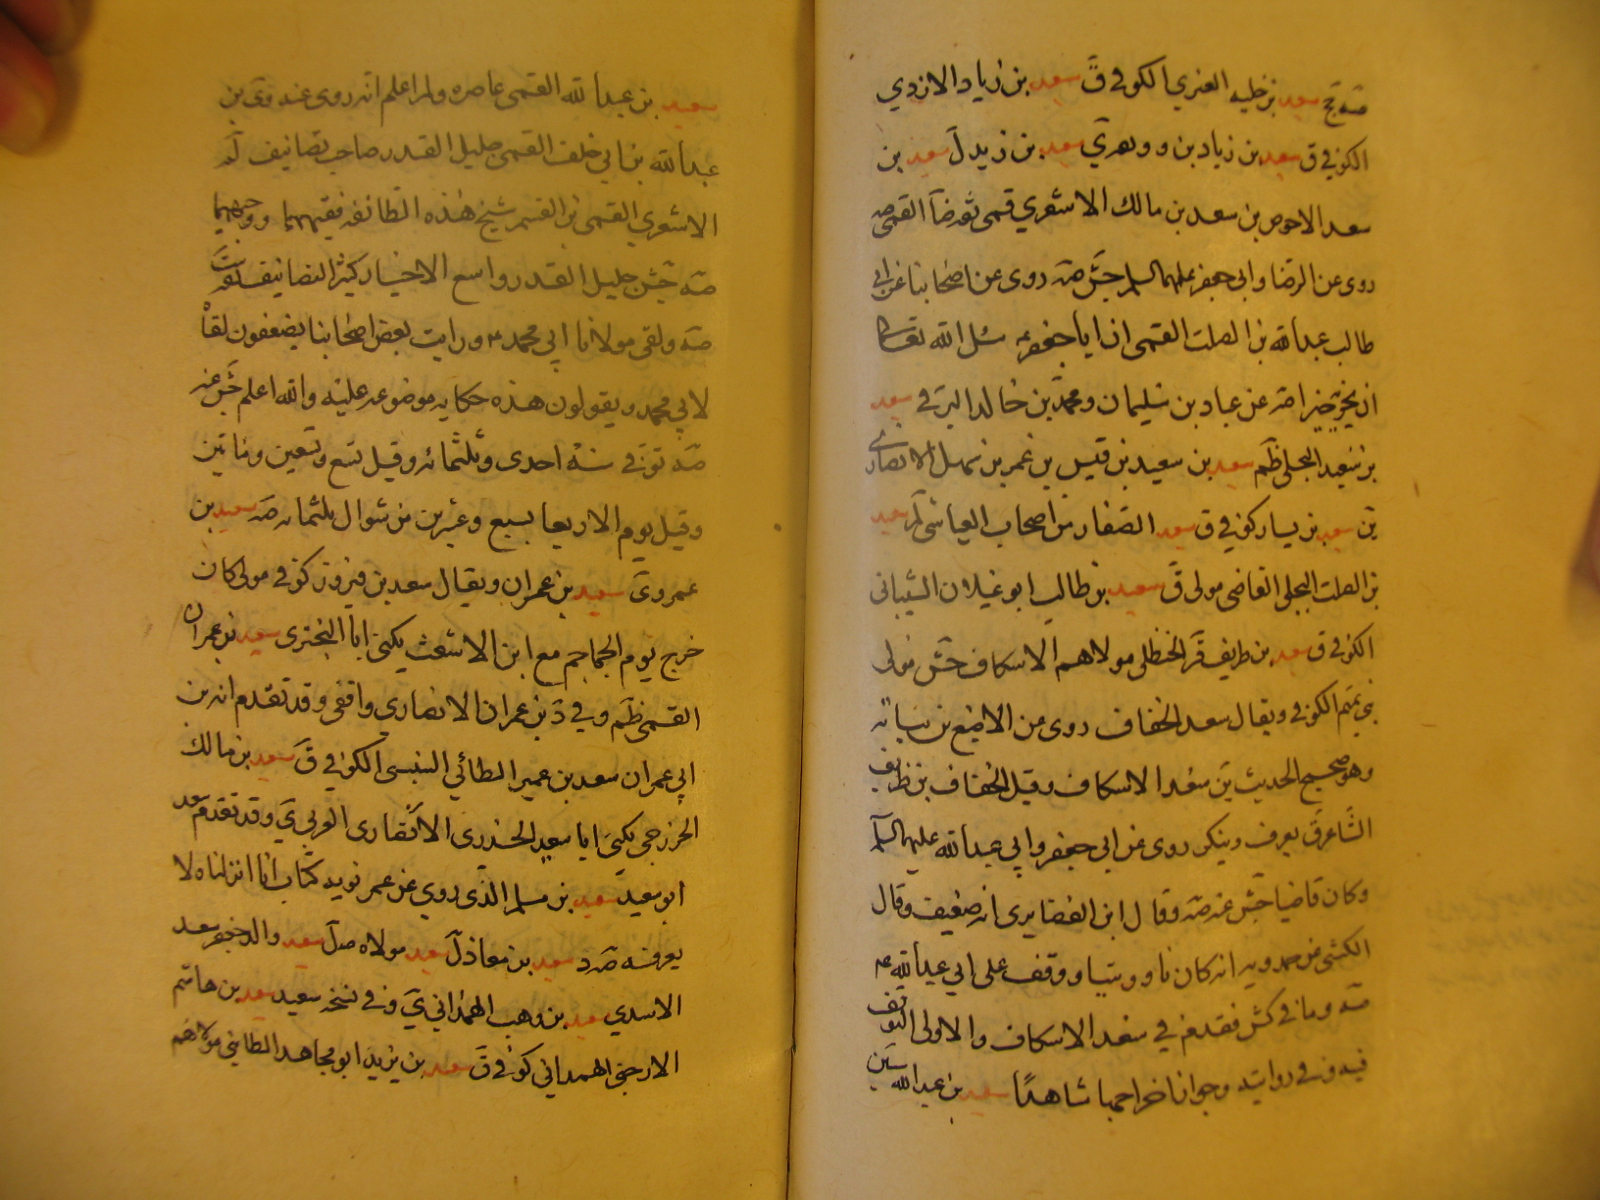 صه جخ سعد بن خليد العنزي الكوفي ق سعد بن زياد الازدي
الكوفي ق سعد بن زياد بن وديعة ي سعد بن زيد ل سعد بن
سعد الاحوص بن سعد بن مالك الاشعري قمي ثقه ضا القمي صه
روى عن الرضا وابي جعفر عليهما السلم جش صه روى عن اصحابنا عن ابي
طالب عبد الله بن الصلت القمي ان ابا جعفر ع سئل الله تعالى
ان يجزيه خيرا صه عن عباد بن سليمان ومحمد بن خالد البرقي سعد
بن سعيد البجلي ظم سعد بن سعيد بن قيس بن عمر بن سهل الانصاري
ين سعد بن يسار كوفي ق سعد الصفار من اصحاب العياشي لم سعد
بن الصلت البجلي القاضي مولى ق سعد بن طالب ابو غيلان الشيباني
الكوفي ق سعد بن طريف قر الحنظلي مولاهم الاسكاف جش مولى
بني تميم الكوفي ويقال سعد الخفاف روى من الاصبغ بن نباته
وهو صحيح الحديث ين سعد الاسكاف وقيل الخفاف بن طريف
الشاعر ق يعرف وينكر روى عن ابي جعفر وابي عبد الله عليهما السلم
وكان قاضيا جش غض صه وقال ابن الغضايري انه ضعيف وقال
الكشي عن حمدويه انه كان ناووسيا ووقف على ابي عبد الله ع
صه وما في كش فقد مر في سعد الاسكاف والاولى التوقف
فيه وفي روايته سعد بن عبد الله
سعيد بن عبد الله القمي عاصره ولم اعلم انه روى عنه دي بن
عبد الله بن ابي خلف القمي جليل القدر صاحب تصانيف لم
الاشعري القمي ابو القسم شيخ هذه الطائفه فقيهها ووجهها
صه جش جليل القدر واسع الاخبار كثير التصانيف ثقه ست
صه ولقي مولانا ابي محمد ع ورايت بعض اصحابنا يضعفون لقاه
لابي محمد ويقولون هذه حكايه موضوعه عليه والله اعلم جش غض
صه توفي سنة احدى وثلثمائه وقيل تسع وتسعين ومائتين
وقيل يوم الاربعا لسبع وعشرين من شوال ثلثمائه صه سعيد بن
عمرو ي سعيد بن عمران ويقال سعد بن فيروز كوفي مولى كان
خرج يوم الجماجم مع ابن الاشعث يكنى ابا البختري سعد بن عمران
القمي ظم وفي د بن عمران الانصاري واقفي وقد تقدم انه بن
ابي عمران سعد بن عمير الطائي السنبسي الكوفي ق سعد بن مالك
الخزرجي يكنى ابا سعيد الخدري الانصاري العربي ي وقد تقدم سعد
ابو سعيد سعيد بن مسلم الذي روى عن عمر بن يزيد كتاب انا انزلناه لا
يعرف صه د سعيد بن معاذ ل سعيد مولاه صل سعيد والد جعفر سعد
الاسدي سعد بن وهب الهمداني ي وفي نسخه سعيد سعد بن هاشم
الارحبي الهمداني كوفي ق سعد بن يزيد ابو مجاهد الطائي مولاهم